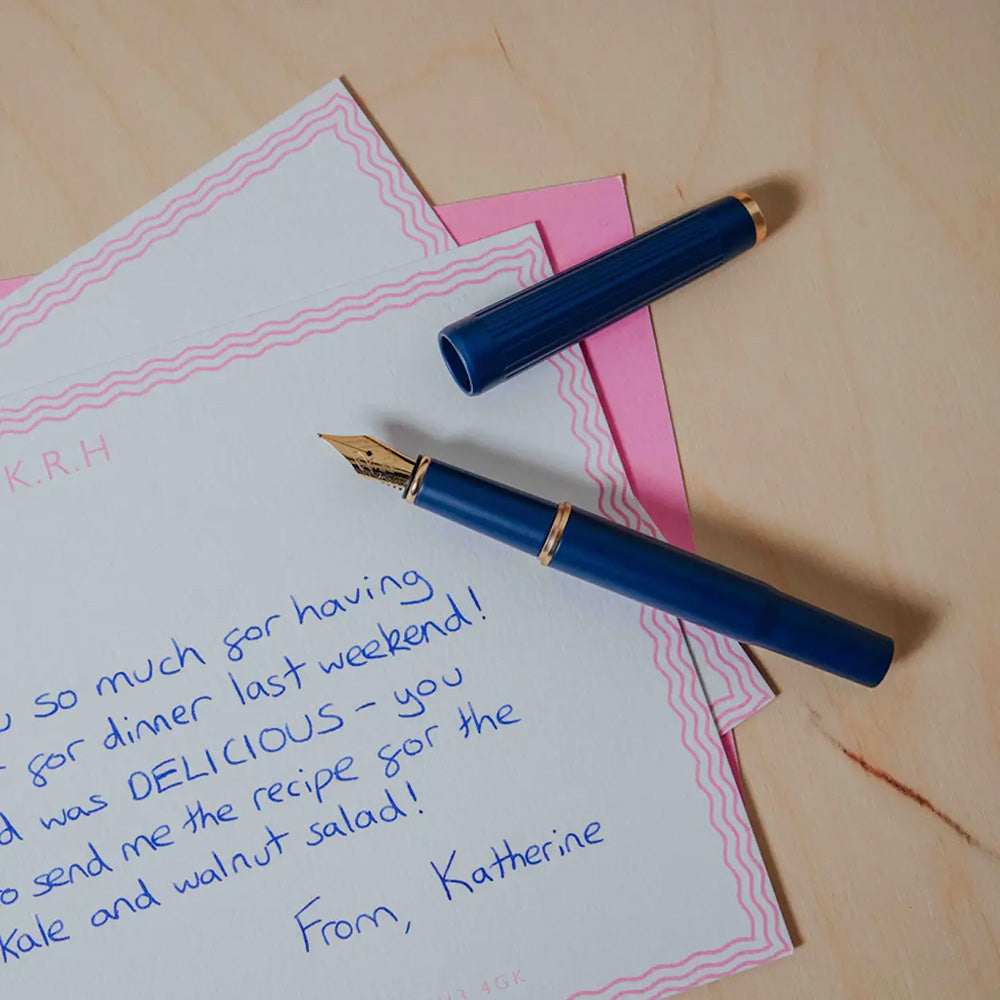 K.R.H
so much for having
for dinner last weekend!
was DELICIOUS - you
send me the recipe for the
kale and walnut salad!
From, Katherine
4GK